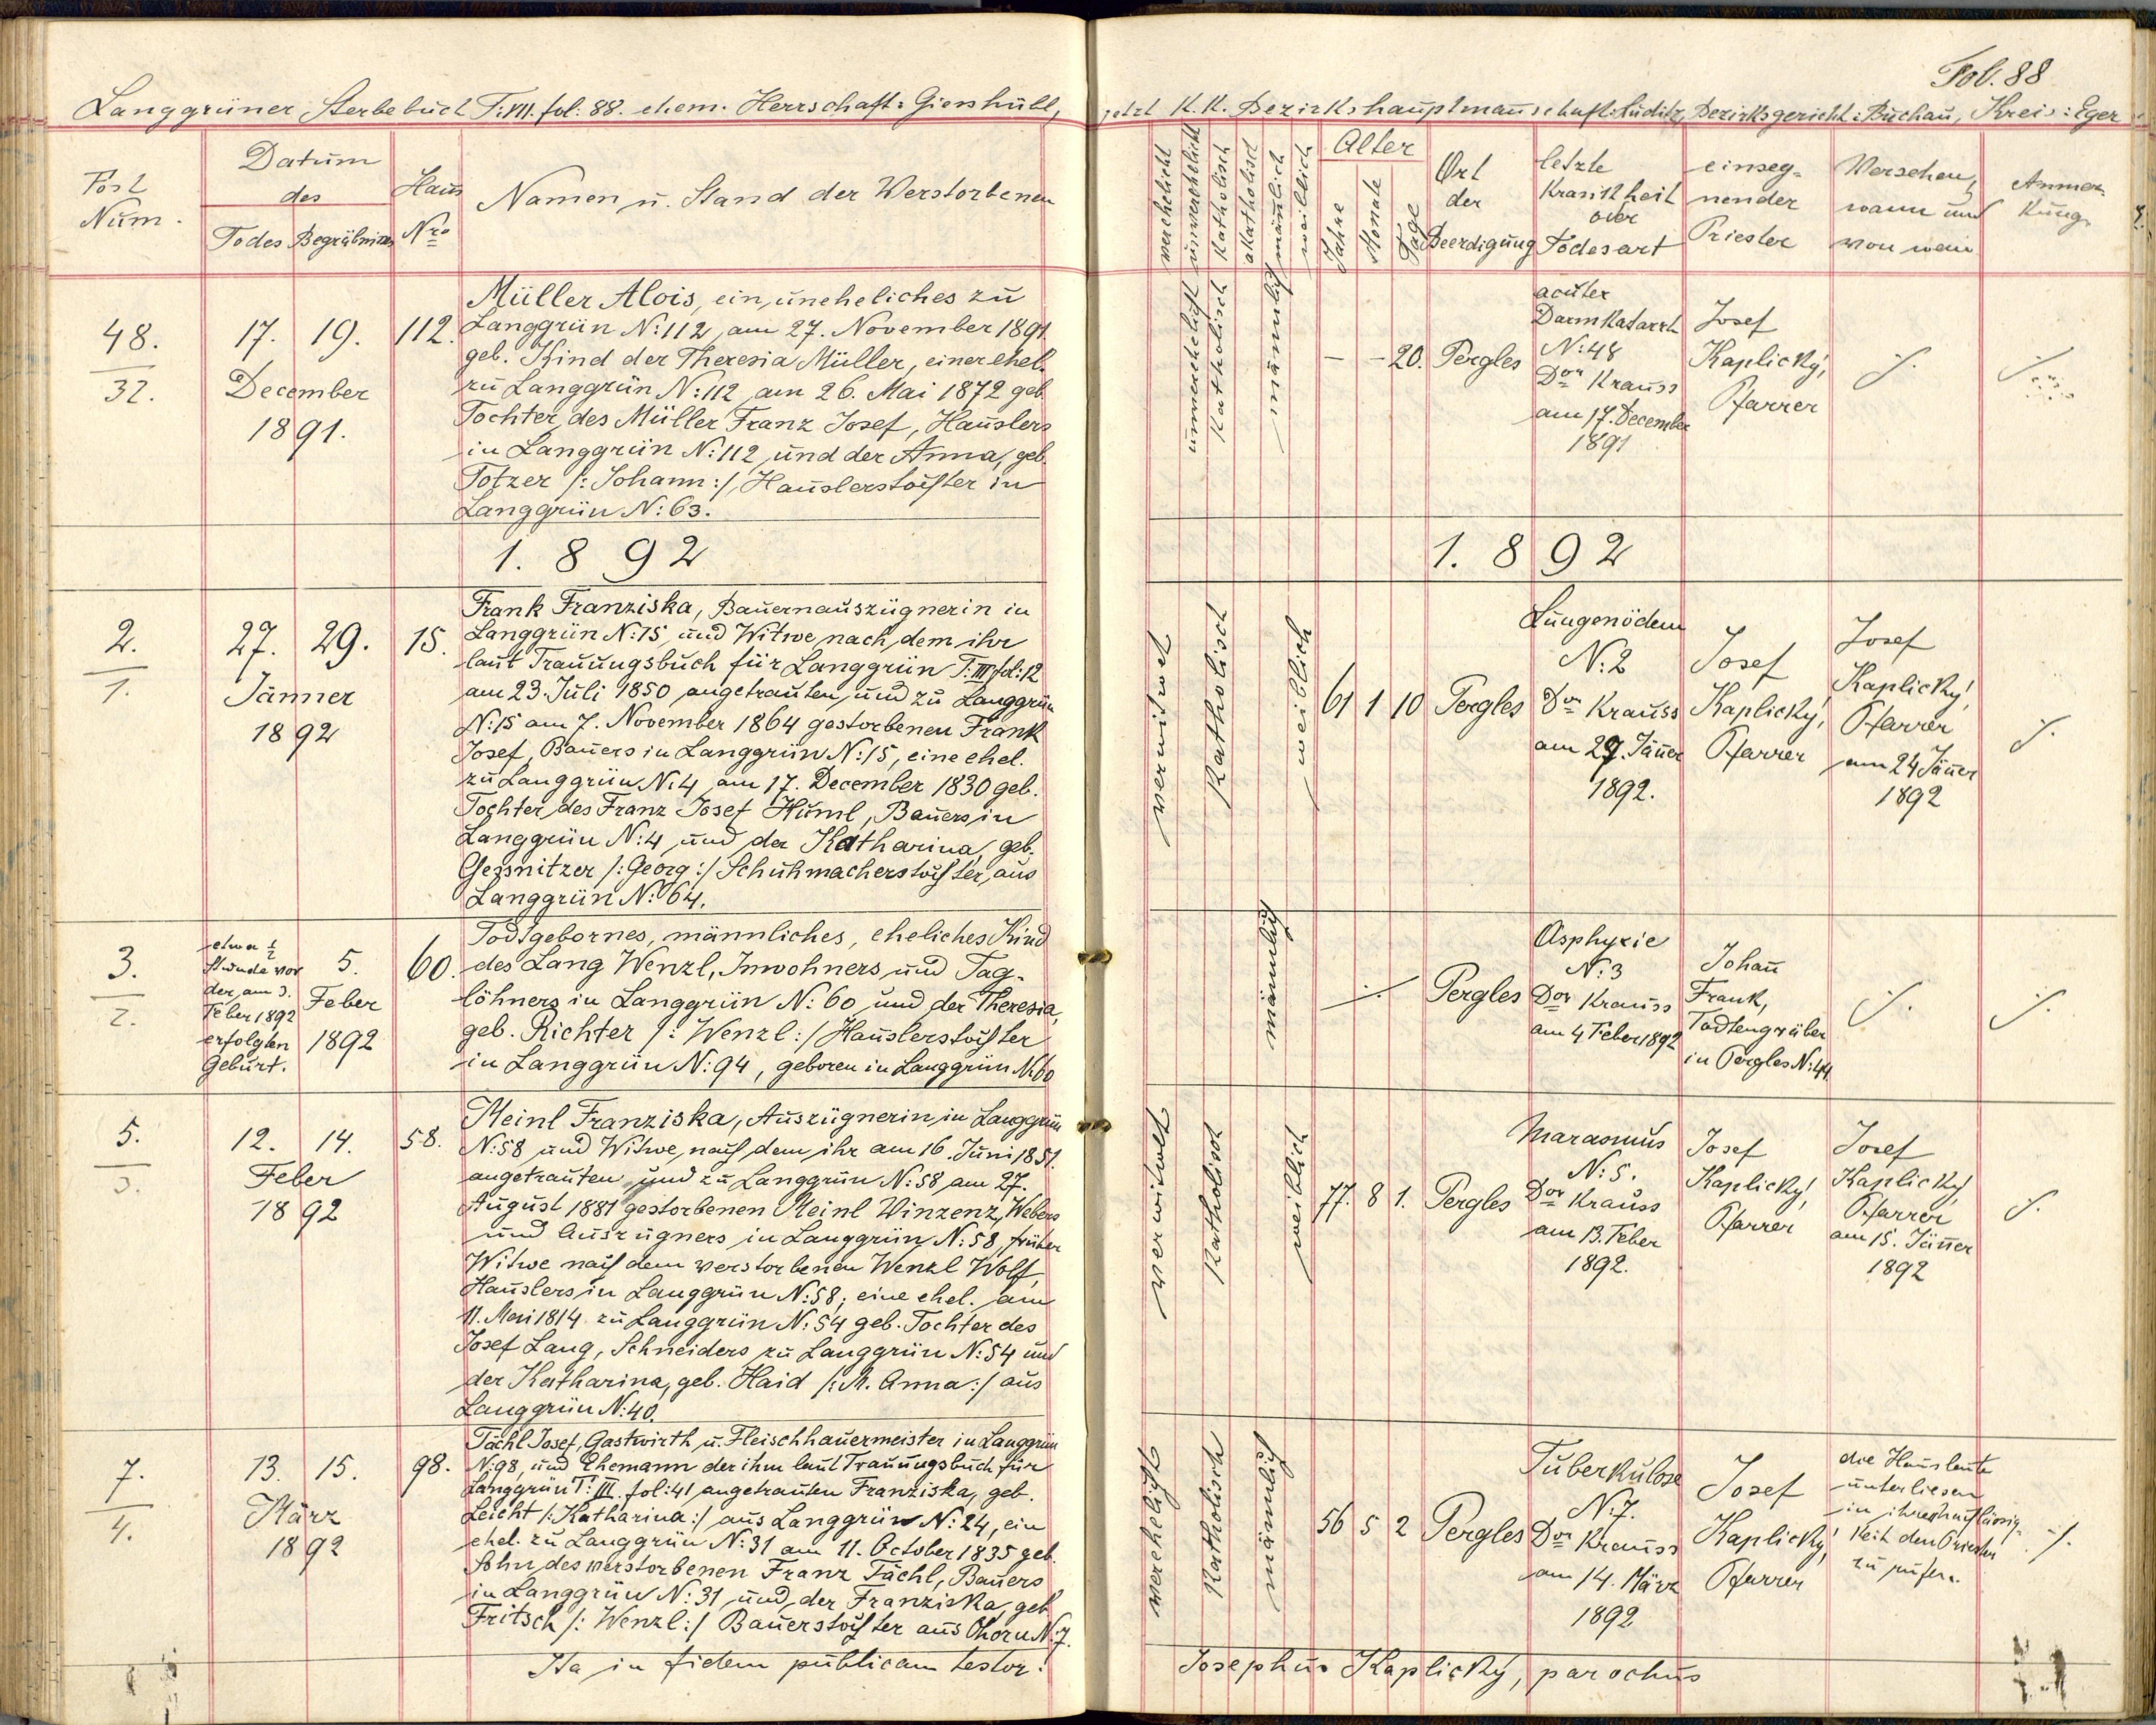 Fol. 88
Langgrüner Sterbebuch T: VII. fol: 88. ehem. Herrschaft: Gieshübl, jetzt K. K. Bezirkshauptmannschaft: Luditz, Bezirksgericht: Buchau, Kreis: Eger
Post Num.
Datum des
Todes Begräbnisses
Haus Nro
Namen u. Stand der Verstorbenen
verehelicht
unverehelicht
Katholisch
akatholisch
männlich
weiblich
Alter
Jahre
Monate
Tage
Ort der Beerdigung
letzte Krankheit oder Todesart
einsegnender Priester
Versehen, wann und von wem
Anmerkung
48.
32.
17. 19.
December
1891.
112.
Müller Alois, ein uneheliches zu
Langgrün N: 112 am 27. November 1891
geb. Kind der Theresia Müller, einer ehel.
zu Langgrün N: 112 am 26. Mai 1872 geb.
Tochter des Müller Franz Josef, Häuslers
in Langgrün N: 112 und der Anna, geb.
Totzer /: Johann :/ Häuslerstochter in
Langgrün N: 63.
unverehelicht
Katholisch
männlich
– – 20.
Pergles
acuter
Darmkatarrh
N: 48
Dor Krauss
am 17. December
1891
Josef
Kaplický,
Pfarrer
./.
./.
1. 8 9 2
1. 8 9 2
2.
1.
27. 29.
Jänner
1892
15.
Frank Franziska, Bauernauszügnerin in
Langgrün N: 15 und Witwe nach dem ihr
laut Trauungsbuch für Langgrün T: III fol: 12
am 23. Juli 1850 angetrauten und zu Langgrün
N: 15 am 7. November 1864 gestorbenen Frank
Josef, Bauers in Langgrün N: 15, eine ehel.
zu Langgrün N: 4 am 17. December 1830 geb.
Tochter des Franz Josef Huml, Bauers in
Langgrün N: 4 und der Katharina, geb.
Gessnitzer /: Georg :/ Schuhmacherstochter aus
Langgrün N: 64.
verwitwet
Katholisch
weiblich
61 1 10
Pergles
Lungenödem
N: 2
Dor Krauss
am 29. Jänner
1892.
Josef
Kaplický,
Pfarrer
Josef
Kaplický,
Pfarrer
am 24 Jänner
1892
./.
3.
2.
etwa ½
Stunde vor
der am 3.
Feber 1892
erfolgten
Geburt.
5.
Feber
1892
60.
Todtgebornes, männliches, eheliches Kind
des Lang Wenzl, Inwohners und Tag-
löhners in Langgrün N: 60 und der Theresia,
geb. Richter /: Wenzl :/ Häuslerstochter
in Langgrün N: 94, geboren in Langgrün N: 60
männlich
./.
Pergles
Asphyxie
N: 3
Dor Krauss
am 4 Feber 1892
Johann
Frank,
Todtengräber
in Pergles N: 44
./.
./.
5.
3.
12. 14.
Feber
1892
58.
Meinl Franziska, Auszügnerin in Langgrün
N: 58 und Witwe, nach dem ihr am 16. Juni 1851.
angetrauten und zu Langgrün N: 58 am 27.
August 1881 gestorbenen Meinl Vinzenz, Webers
und Auszügners in Langgrün N: 58, früher
Witwe nach dem verstorbenen Wenzl Wolf,
Häuslers in Langgrün N: 58; eine ehel. am
11. Mai 1814 zu Langgrün N: 54 geb. Tochter des
Josef Lang, Schneiders zu Langgrün N: 54 und
der Katharina, geb. Haid /: M. Anna :/ aus
Langgrün N: 40.
verwitwet
Katholisch
weiblich
77. 8 1.
Pergles
Marasmus
N: 5.
Dor Krauss
am 13. Feber
1892.
Josef
Kaplický,
Pfarrer
Josef
Kaplický,
Pfarrer
am 15. Jänner
1892
./.
7.
4.
13. 15.
März
1892
98.
Tächl Josef, Gastwirth u. Fleischhauermeister in Langgrün
N: 98, und Ehemann der ihm laut Trauungsbuch für
Langgrün T: III. fol: 41 angetrauten Franziska, geb.
Leicht /: Katharina :/ aus Langgrün N: 24, ein
ehel. zu Langgrün N: 31 am 11. October 1835 geb.
Sohn des verstorbenen Franz Tächl, Bauers
in Langgrün N: 31 und der Franziska, geb.
Fritsch /: Wenzl :/ Bauerstochter aus Ohorn N: 7.
verehelicht
Katholisch
männlich
56 5 2
Pergles
Tuberkulose
N: 7.
Dor Krauss
am 14. März
1892
Josef
Kaplický,
Pfarrer
die Hausleute
unterliesen
in ihrer
keit den Priester
zu rufen.
./.
Ita in fidem publicam testor: Josephus Kaplický, parochus